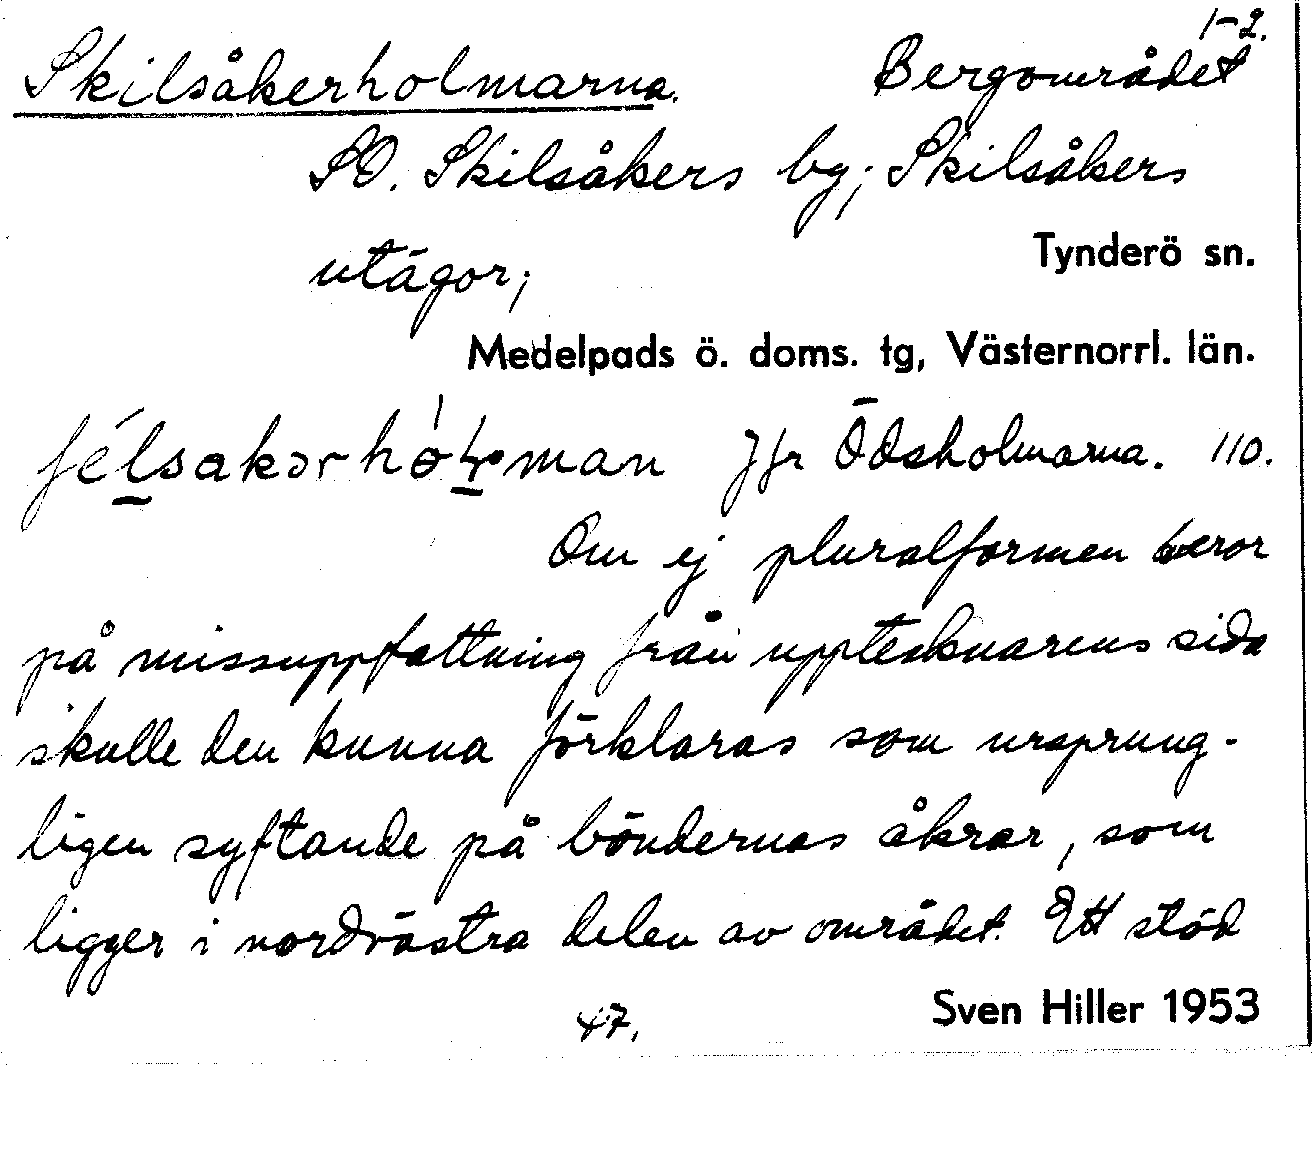 1-2.
Skilsåkerholmarna. Bergområdet
SO. Skilsåkers by; Skilsåkers
utägor;
Tynderö sn.
Medelpads ö. doms. tg, Västernorrl. län.
Jfr Ödsholmarna. 110.
Om ej pluralformen beror
på missuppfattning från upptecknarens sida
skulle den kunna förklaras som ursprung-
ligen syftande på böndernas åkrar, som
ligger i nordvästra delen av området. Ett stöd
47.
Sven Hiller 1953